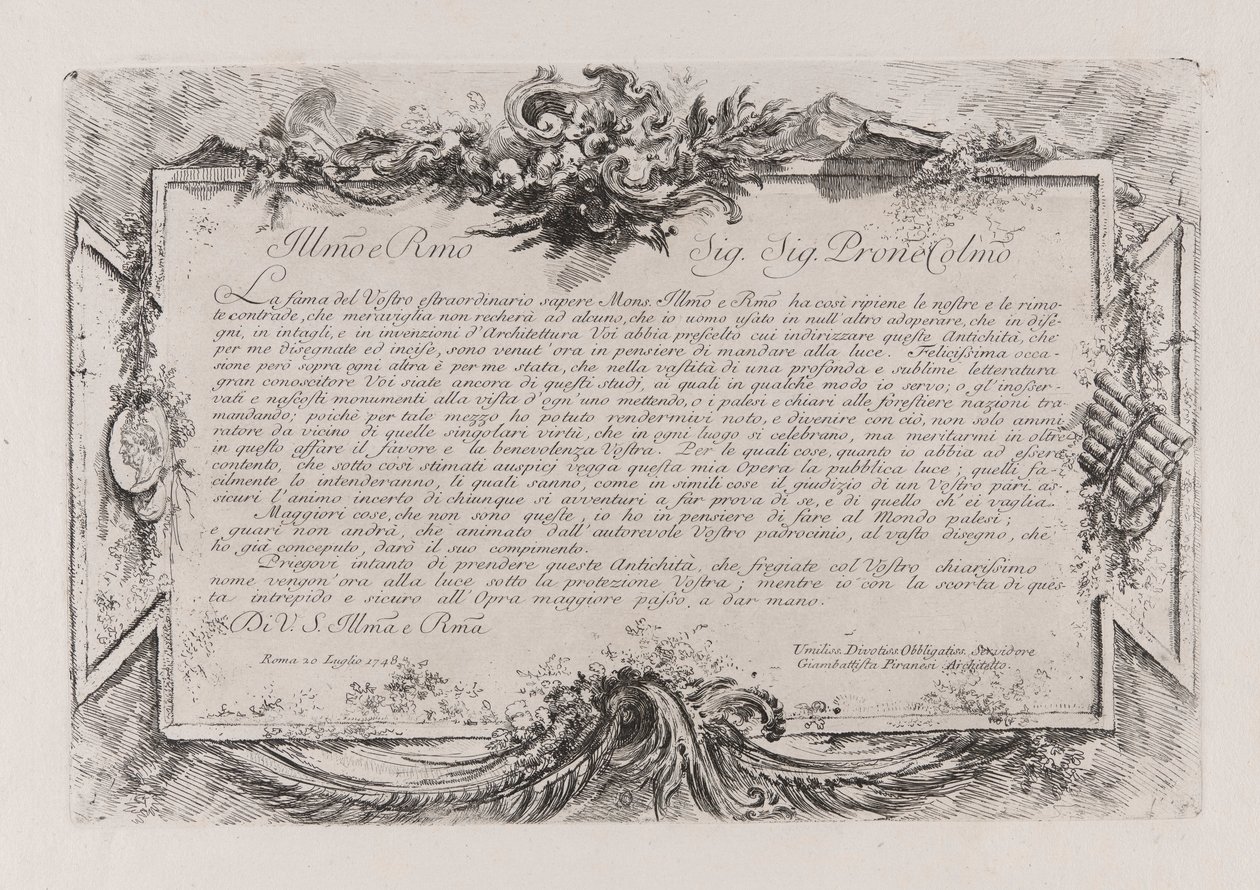 Illm̃o e Rm̃o Sig. Sig. Pronẽ Colm̃o
La fama del Vostro estraordinario sapere Mons. Illm̃o e Rm̃o ha così ripiene le nostre e le rimo-
te contrade, che meraviglia non recherà ad alcuno, che io uomo usato in null'altro adoperare, che in dise-
gni, in intagli, e in invenzioni d'Architettura Voi abbia prescelto cui indirizzare queste Antichità, che
per me disegnate ed incise, sono venut'ora in pensiere di mandare alla luce. Felicissima occa-
sione però sopra ogni altra è per me stata, che nella vastità di una profonda e sublime letteratura
gran conoscitore Voi siate ancora di questi studj, ai quali in qualche modo io servo; o gl'inosser-
vati e nascosti monumenti alla vista d'ogn'uno mettendo, o i palesi e chiari alle forestiere nazioni tra-
mandando; poichè per tale mezzo ho potuto rendermivi noto, e divenire con ciò, non solo ammi-
ratore da vicino di quelle singolari virtù, che in ogni luogo si celebrano, ma meritarmi in oltre
in questo affare il favore e la benevolenza Vostra. Per le quali cose, quanto io abbia ad essere
contento, che sotto così stimati auspicj vegga questa mia Opera la pubblica luce; quelli fa-
cilmente lo intenderanno, li quali sanno, come in simili cose il giudizio di un Vostro pari as-
sicuri l'animo incerto di chiunque si avventuri a far prova di se, e di quello ch'ei vaglia.
Maggiori cose, che non sono queste, io ho in pensiere di fare al Mondo palesi;
e guari non andrà, che animato dall'autorevole Vostro padrocinio, al vasto disegno, che
ho già conceputo, darò il suo compimento.
Priegovi intanto di prendere queste Antichità, che fregiate col Vostro chiarissimo
nome vengon'ora alla luce sotto la protezione Vostra; mentre io con la scorta di ques-
ta intrepido e sicuro all'Opra maggiore passo a dar mano.
Di V. S. Illm̃a e Rm̃a
Roma 20 Luglio 1748
Umiliss. Divotiss. Obbligatiss. Servidore
Giambattista Piranesi Architetto.